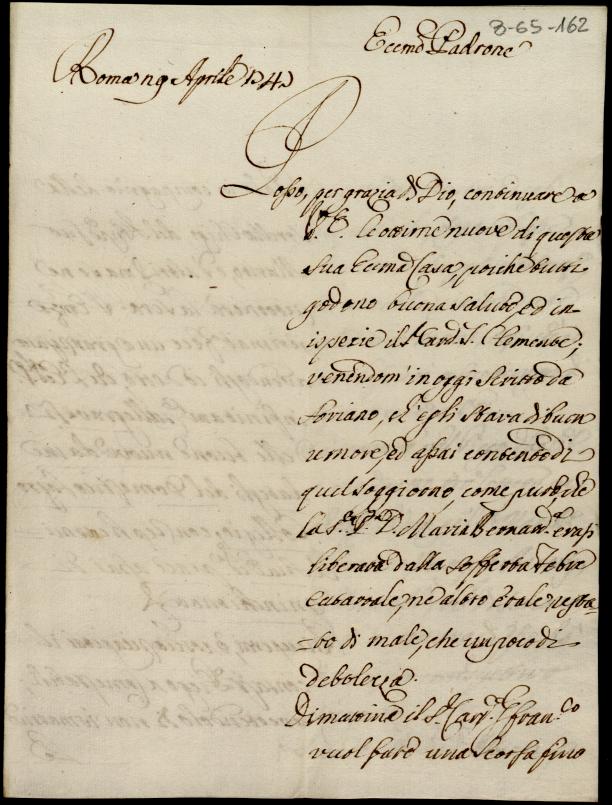 8-65-162
Eccmo Padrone
Roma 19 Aprile 174
Posso, per grazia di Dio, continuare a
V. E. le ottime nuove di questa
sua Eccma Casa, poiche tutti
godono buona salute, ed in
ispezie il Sr Card. S. Clemente;
venendom' in oggi scritto da
Soriano, ch'egli stava di buon
umore, ed assai contento di
quel soggiorno, come pure, che
la Sra D. Maria Bernarda erasi
liberata dalla sofferta febre
catarrale, ne altro erale resta-
=to di male, che un poco di
debolezza.
Dimattina il Sr Franco
vuol fare una scorsa fino